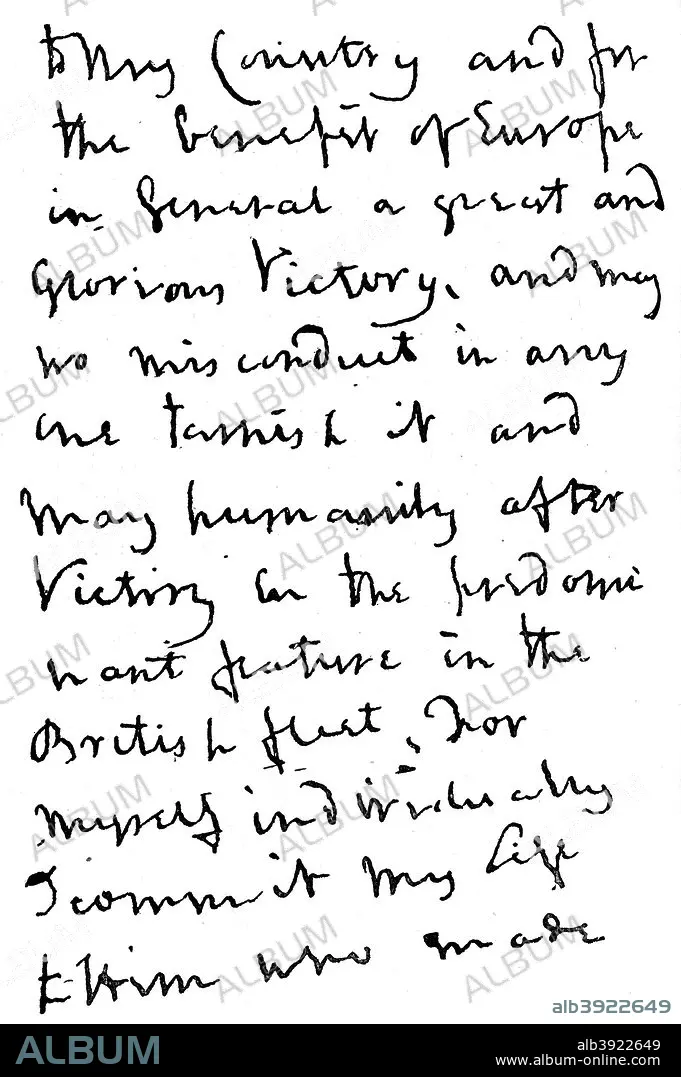 to my Country and for
the benefit of Europe
in General a great and
Glorious Victory, and may
no misconduct in any
one tarnish it and
may humanity after
Victory be the predomi
nant feature in the
British fleet, For
myself individually
I commit my Life
to Him who made
alb3922649
ALBUM
alb3922649
www.album-online.com